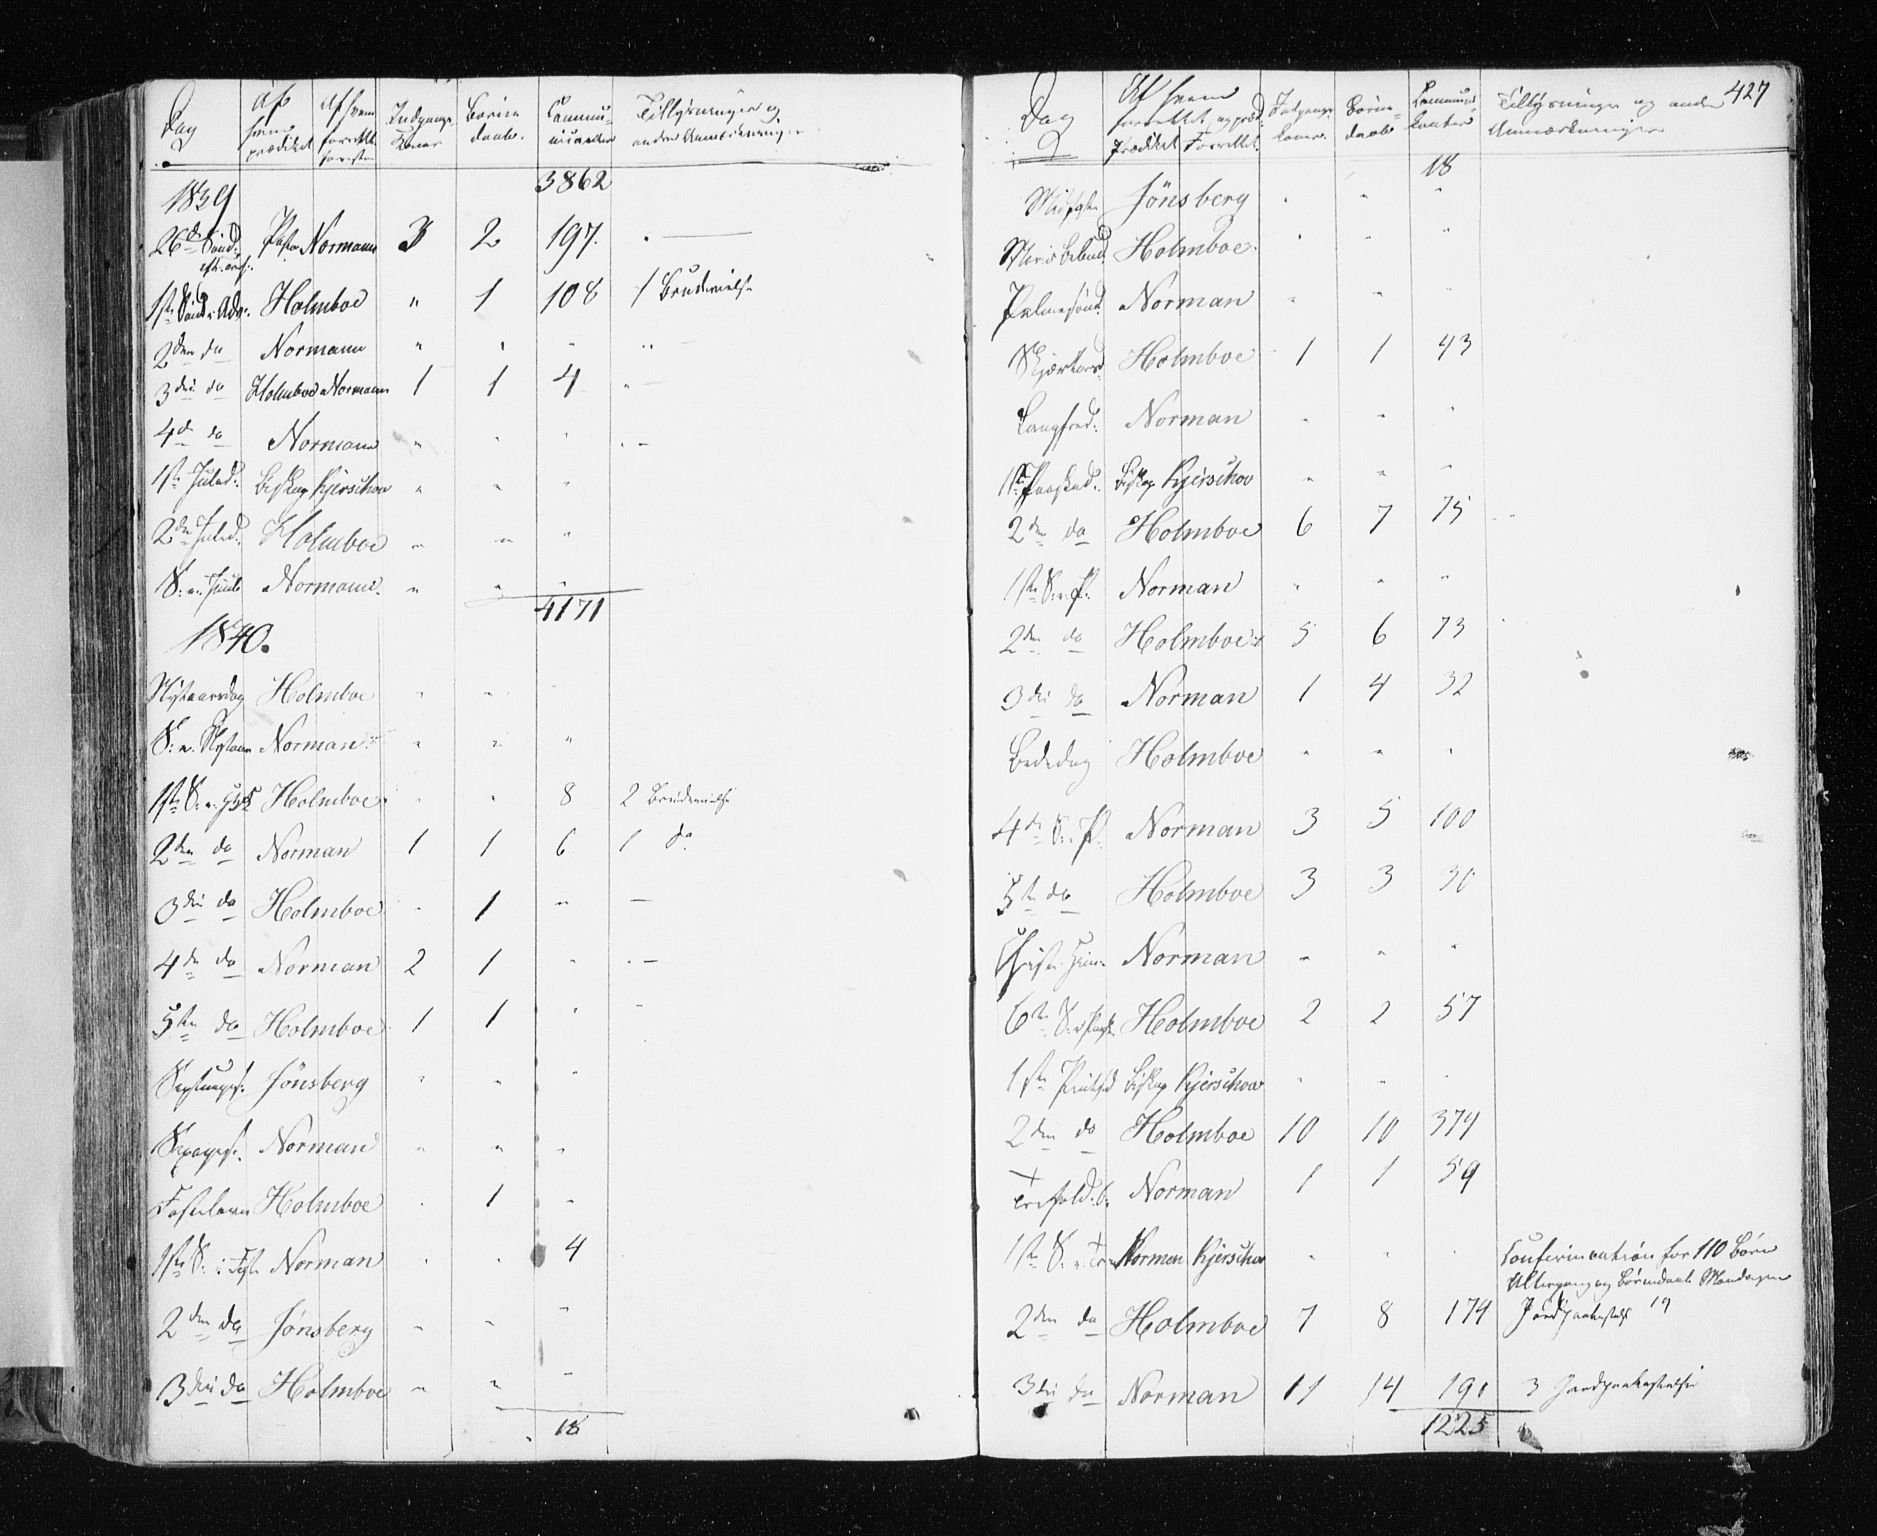 Dag Af hvem prædiket Af hvem forrettet for Alter Indgangs Koner Børne daab. Communicanter Tillysninger og andre Anmærkninger
3862
1839
26de Sønd. eft. Pastor Normann 3 2 197. " —
1ste Sønd. i Adv. Holmboe " 1 108 1 Brudevielse
2den do Normann " " " " —
3die do Holmboe Normann 1 1 4 " —
4de do Normann " " " " —
1ste Juled. Biskop Kjerschow " " "
2den Juled. Holmboe " " "
S. e. Juul Normann. " " "
4171
1840.
Nytaarsdag Holmboe " " "
S. e. Nytaar Norman " " "
1ste S. e. H3K Holmboe " " 8 2 Brudevielse
2den do Norman 1 1 6 1 do
3die do Holmboe " 1 " —
4de do Norman 2 1 " " —
5te do Holmboe 1 1 " "
Septuages. Jönsberg " " "
Sexages. Norman " " "
Fastelavn Holmboe " 1 "
1ste S. i Faste Norman " " 4
2den do Jønsberg " " "
3die do Holmboe " " "
18
427
Dag Af hvem forrettet, og præd. Prædiket Forrettet Indgangs koner Børne daab Communicanter Tillysninger og andre Anmærkninger
18
Midfaste Jönsberg " " "
Mariæ Bebud. Holmboe " " "
Palmesønd. Norman " " "
Skjærtorsd. Holmboe 1 1 43
Langfred. Norman " " "
1ste Paasked. Biskop Kjerschow " " "
2den do Holmboe 6 7 75 "
1ste S. e. P. Norman " " "
2den do Holmboe 5 6 73 "
3die do Norman 1 4 32
Bededag Holmboe " " "
4de S. e. P. Norman 3 5 100
5te do Holmboe 3 3 30
Christi Him. Norman " " "
6te S. e. Paaske Holmboe 2 2 57
1ste Pintsed Biskop Kjerschow " " "
2den do Holmboe 10 10 374
Trefold. S. Norman 1 1 59
1ste S. e. Tr. Norman Kjerschow " " " Confirmation for 110 Børn
Altergang og Børnedaab Mandagen
2den do Holmboe 7 8 174 Jordpaakastelse 19
3die do Norman 11 14 191 3 Jordpaakastelse
1225